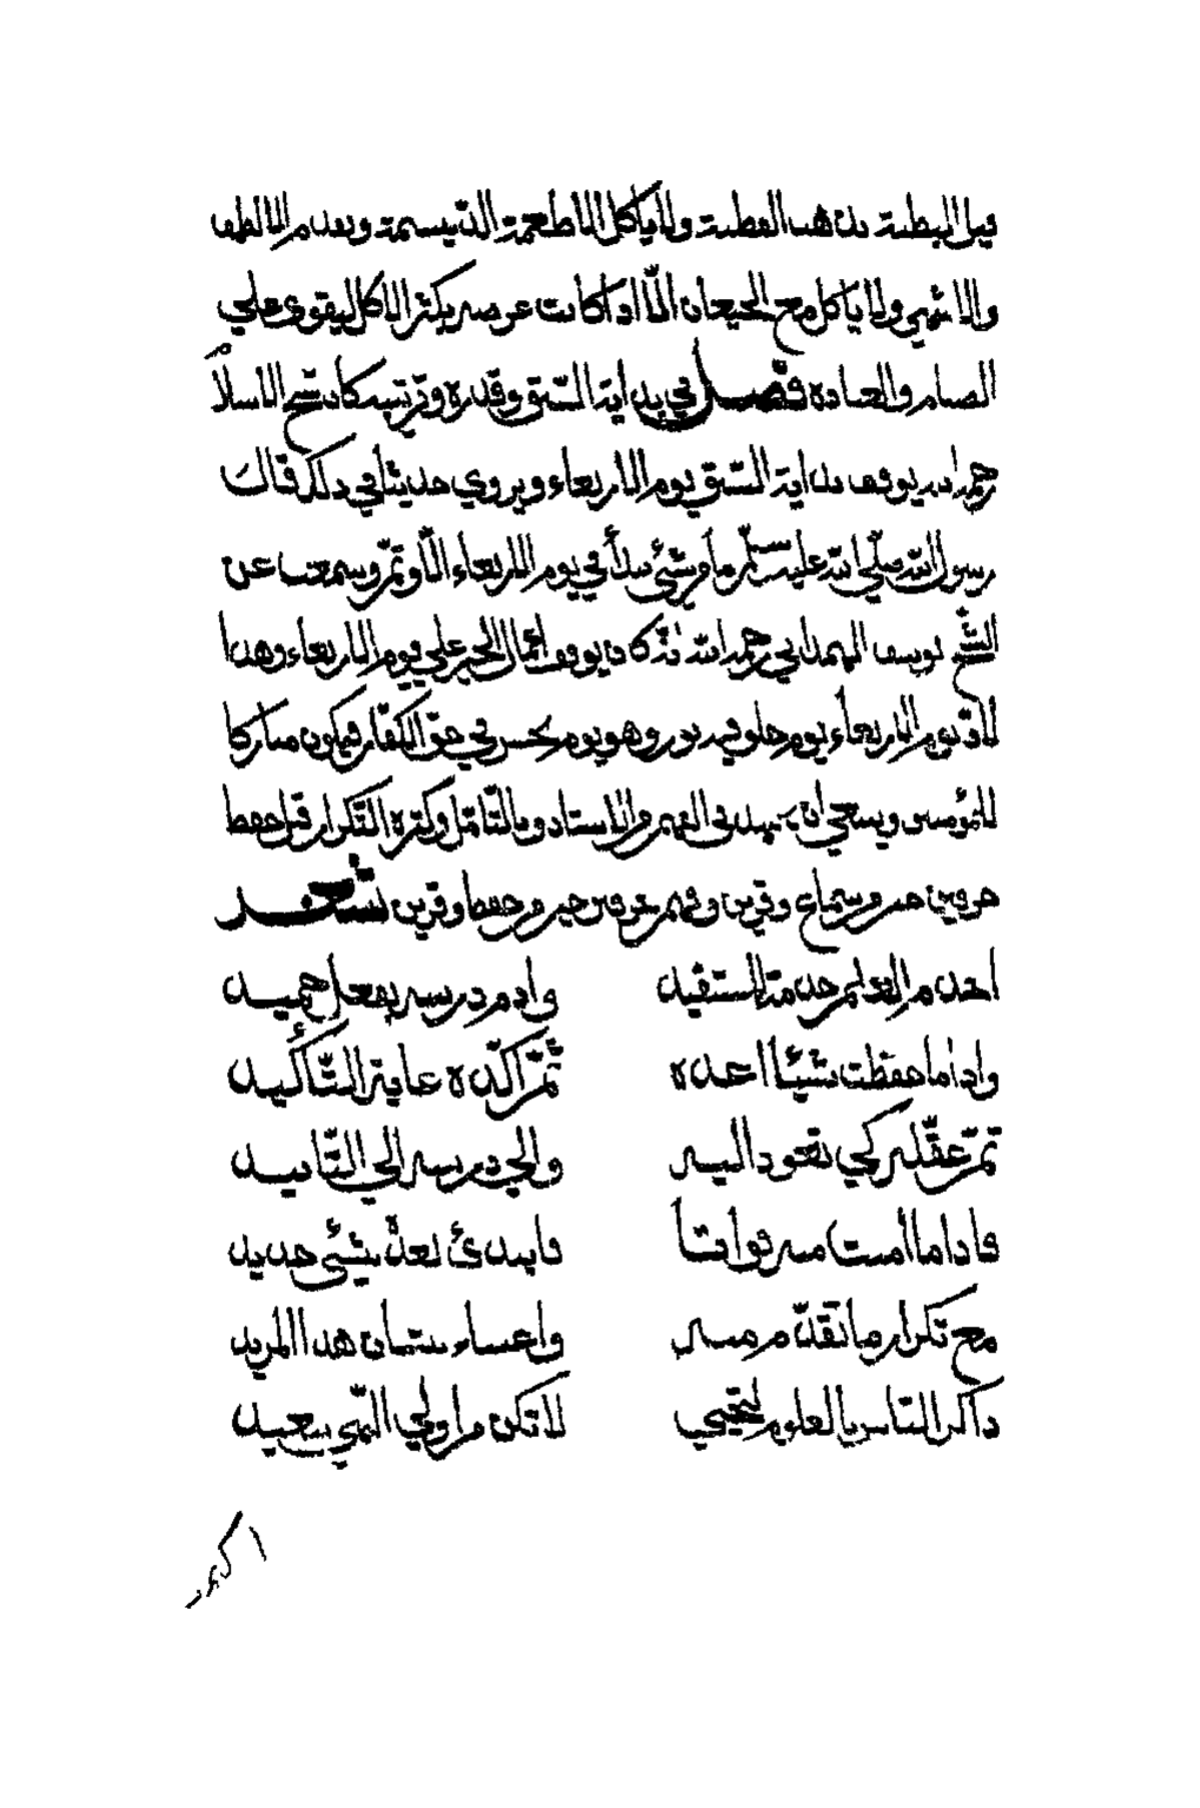 قيل البطنة تذهب الفطنة ولا ياكل الاطعمة الدسمة ويقدم الالطف
والاشهي ولا ياكل مع الجيعان الّا اذا كانت غرضه بكثر الاكل ليقوي علي
الصيام والعبادة فصل في بداية السّبق وقدره وترتيبه كان شيخ الاسلام
رحمه الله يوقف بداية السّبق يوم الاربعاء ويروي حديثا في ذلك قال
رسول اللّه صلّي اللّه عليه وسلّم ما من شئ بدأ في يوم الاربعاء الّا وتمّ وسمعت عن
الشّيخ يوسف الهمداني رحمه اللّه انّه كان يوقف اعمال الخير علي يوم الاربعاء وهذا
لانّ يوم الاربعاء يوم خلق فيه نور وهو يوم نحس في حقّ الكفّار فيكون مباركا
للمؤمنين وينبغي ان يجهد في الفهم من الاستاد وبالتّامّل وكثرة التّكرار قيل حفظ
حرفين خير من سماع وقرين وفهم حرفين خير من حفظ وقرين شعر
اخدم العلم خدمة المستفيد
وادم درسه بفعل حميد
واذا ما حفظت شيئا اعده
ثمّ اكّده غاية التّأكيد
ثمّ علّقه كي تعود اليه
والي درسه الي التّابيد
فاذا ما امنت منه فواتا
فابتدئ بعده بشئ جديد
مع تكرار ما تقدّم منه
واعتناء بشان هذا المزيد
ذاكر النّاس بالعلوم لتحيي
لا تكن من اولي النّهي ببعيد